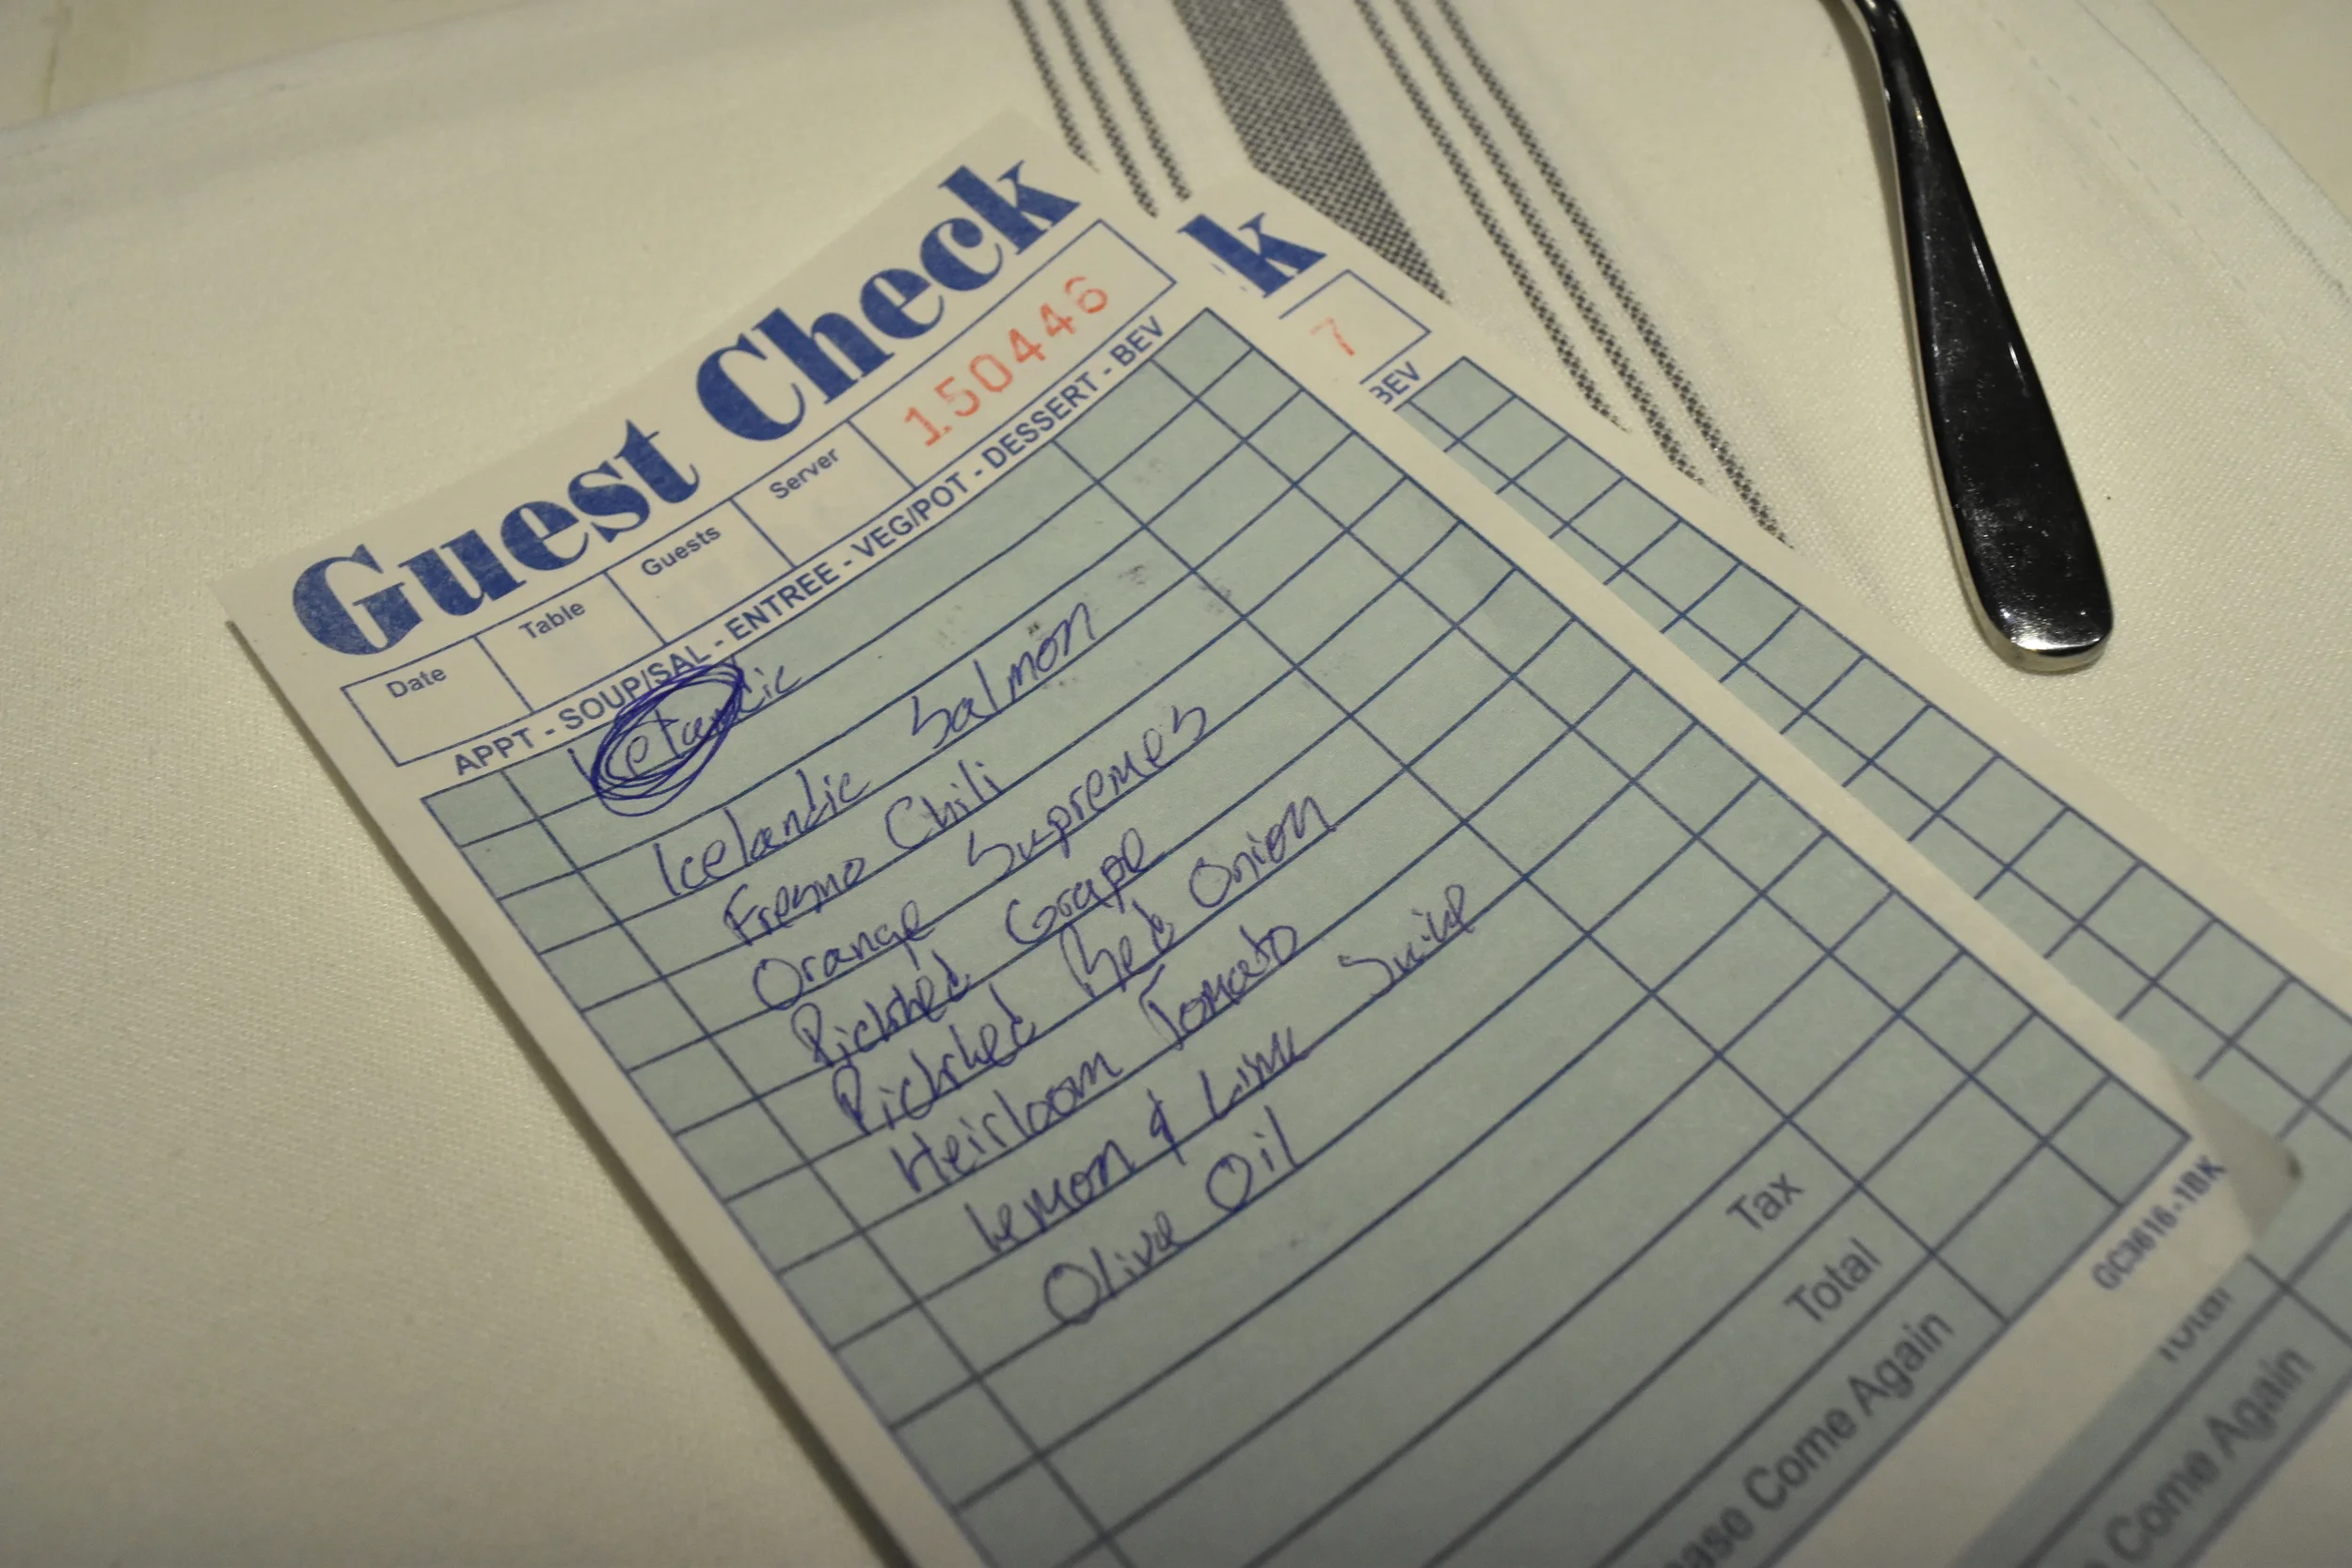 Guest Check
Date Table Guests Server 150446
APPT - SOUP/SAL - ENTREE - VEG/POT - DESSERT - BEV
Icelandic
Icelandic Salmon
Fresno Chili
Orange Supremes
Pickled Grape
Pickled Red Onion
Heirloom Tomato
Lemon & Lime Juice
Olive Oil
Tax
Total
ase Come Again
GC3616-1BK
k
7
BEV
Total
Come Again